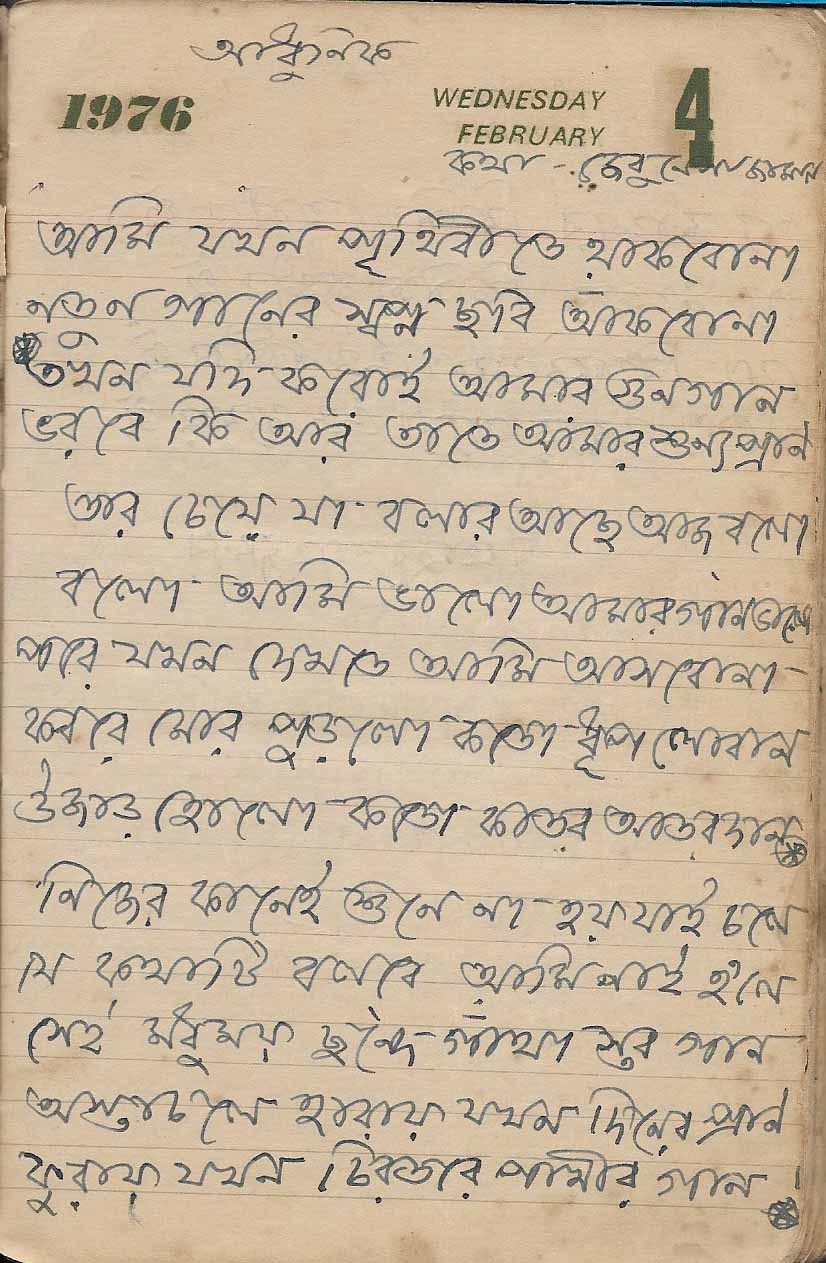 আধুনিক
1976
WEDNESDAY 4
FEBRUARY
কথা - জেবুন্নেসা জামাল
আমি যখন পৃথিবীতে থাকবোনা
নতুন গানের স্বপ্ন ছবি আঁকবোনা
তখন যদি করোই আমার গুনগান
ভরবে কি আর তাতে আমার শুন্য প্রান
তার চেয়ে যা বলার আছে আজ বলো
বলো আমি ভালো আমার গান ভালো
পরে যখন দেখতে আমি আসবোনা
কবরে মোর পুড়লো কতো ধূপ লোবান
উজাড় হোলো কতো কাতর আতরদান
নিজের কানেই শুনে না হয় যাই চলে
যে কথাটি বলবে আমি নাই হলে
সেই মধুময় ছন্দে গাঁথা স্তব গান
অস্তাচলে হারায় যখন দিনের প্রান
ফুরায় যখন চিরতরে পাখীর গান